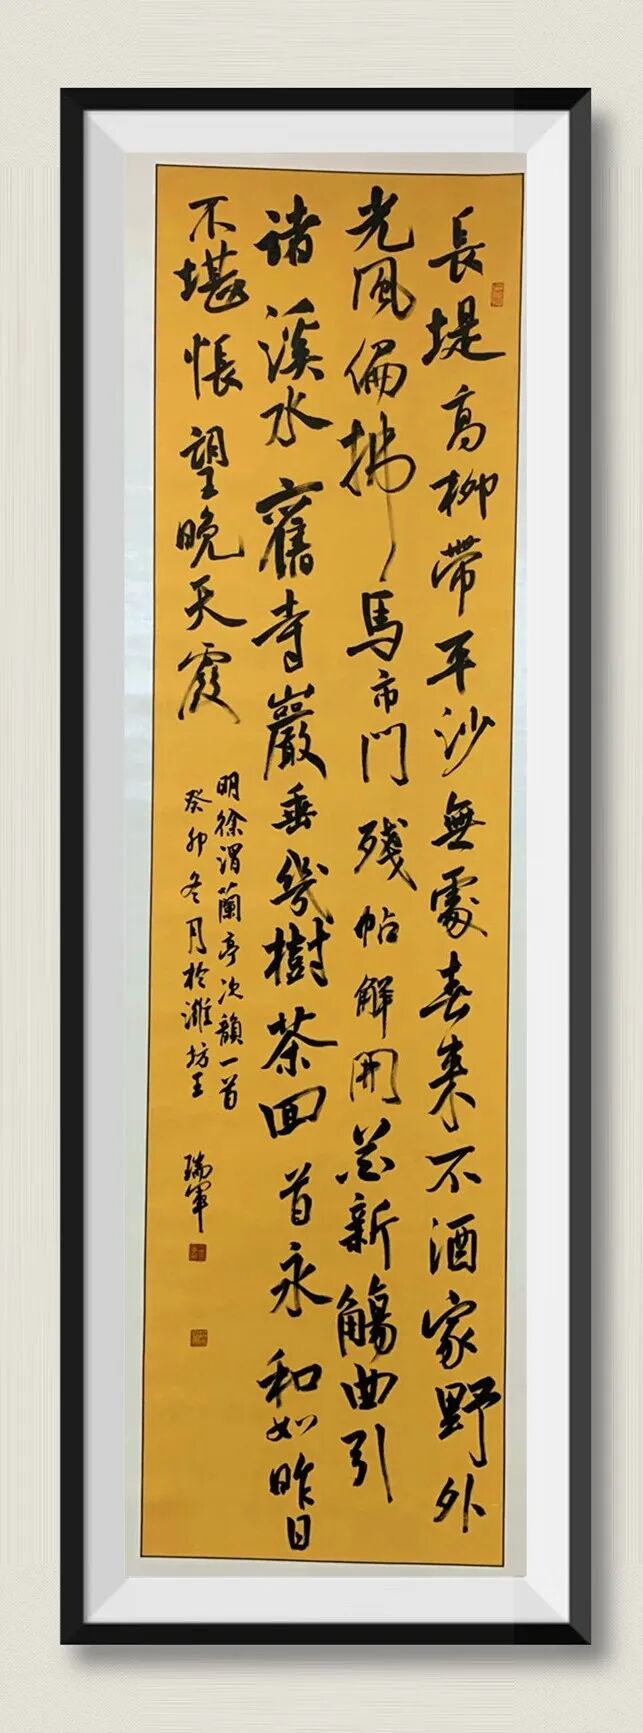 長堤高柳帶平沙無處春來不酒家野外
光風偏拂馬市門殘帖解開花新觴曲引
諸溪水舊寺巖垂幾樹茶回首永和如昨日
不堪悵望晚天霞
明徐渭蘭亭次韻一首
癸卯冬月於濰坊王瑞軍